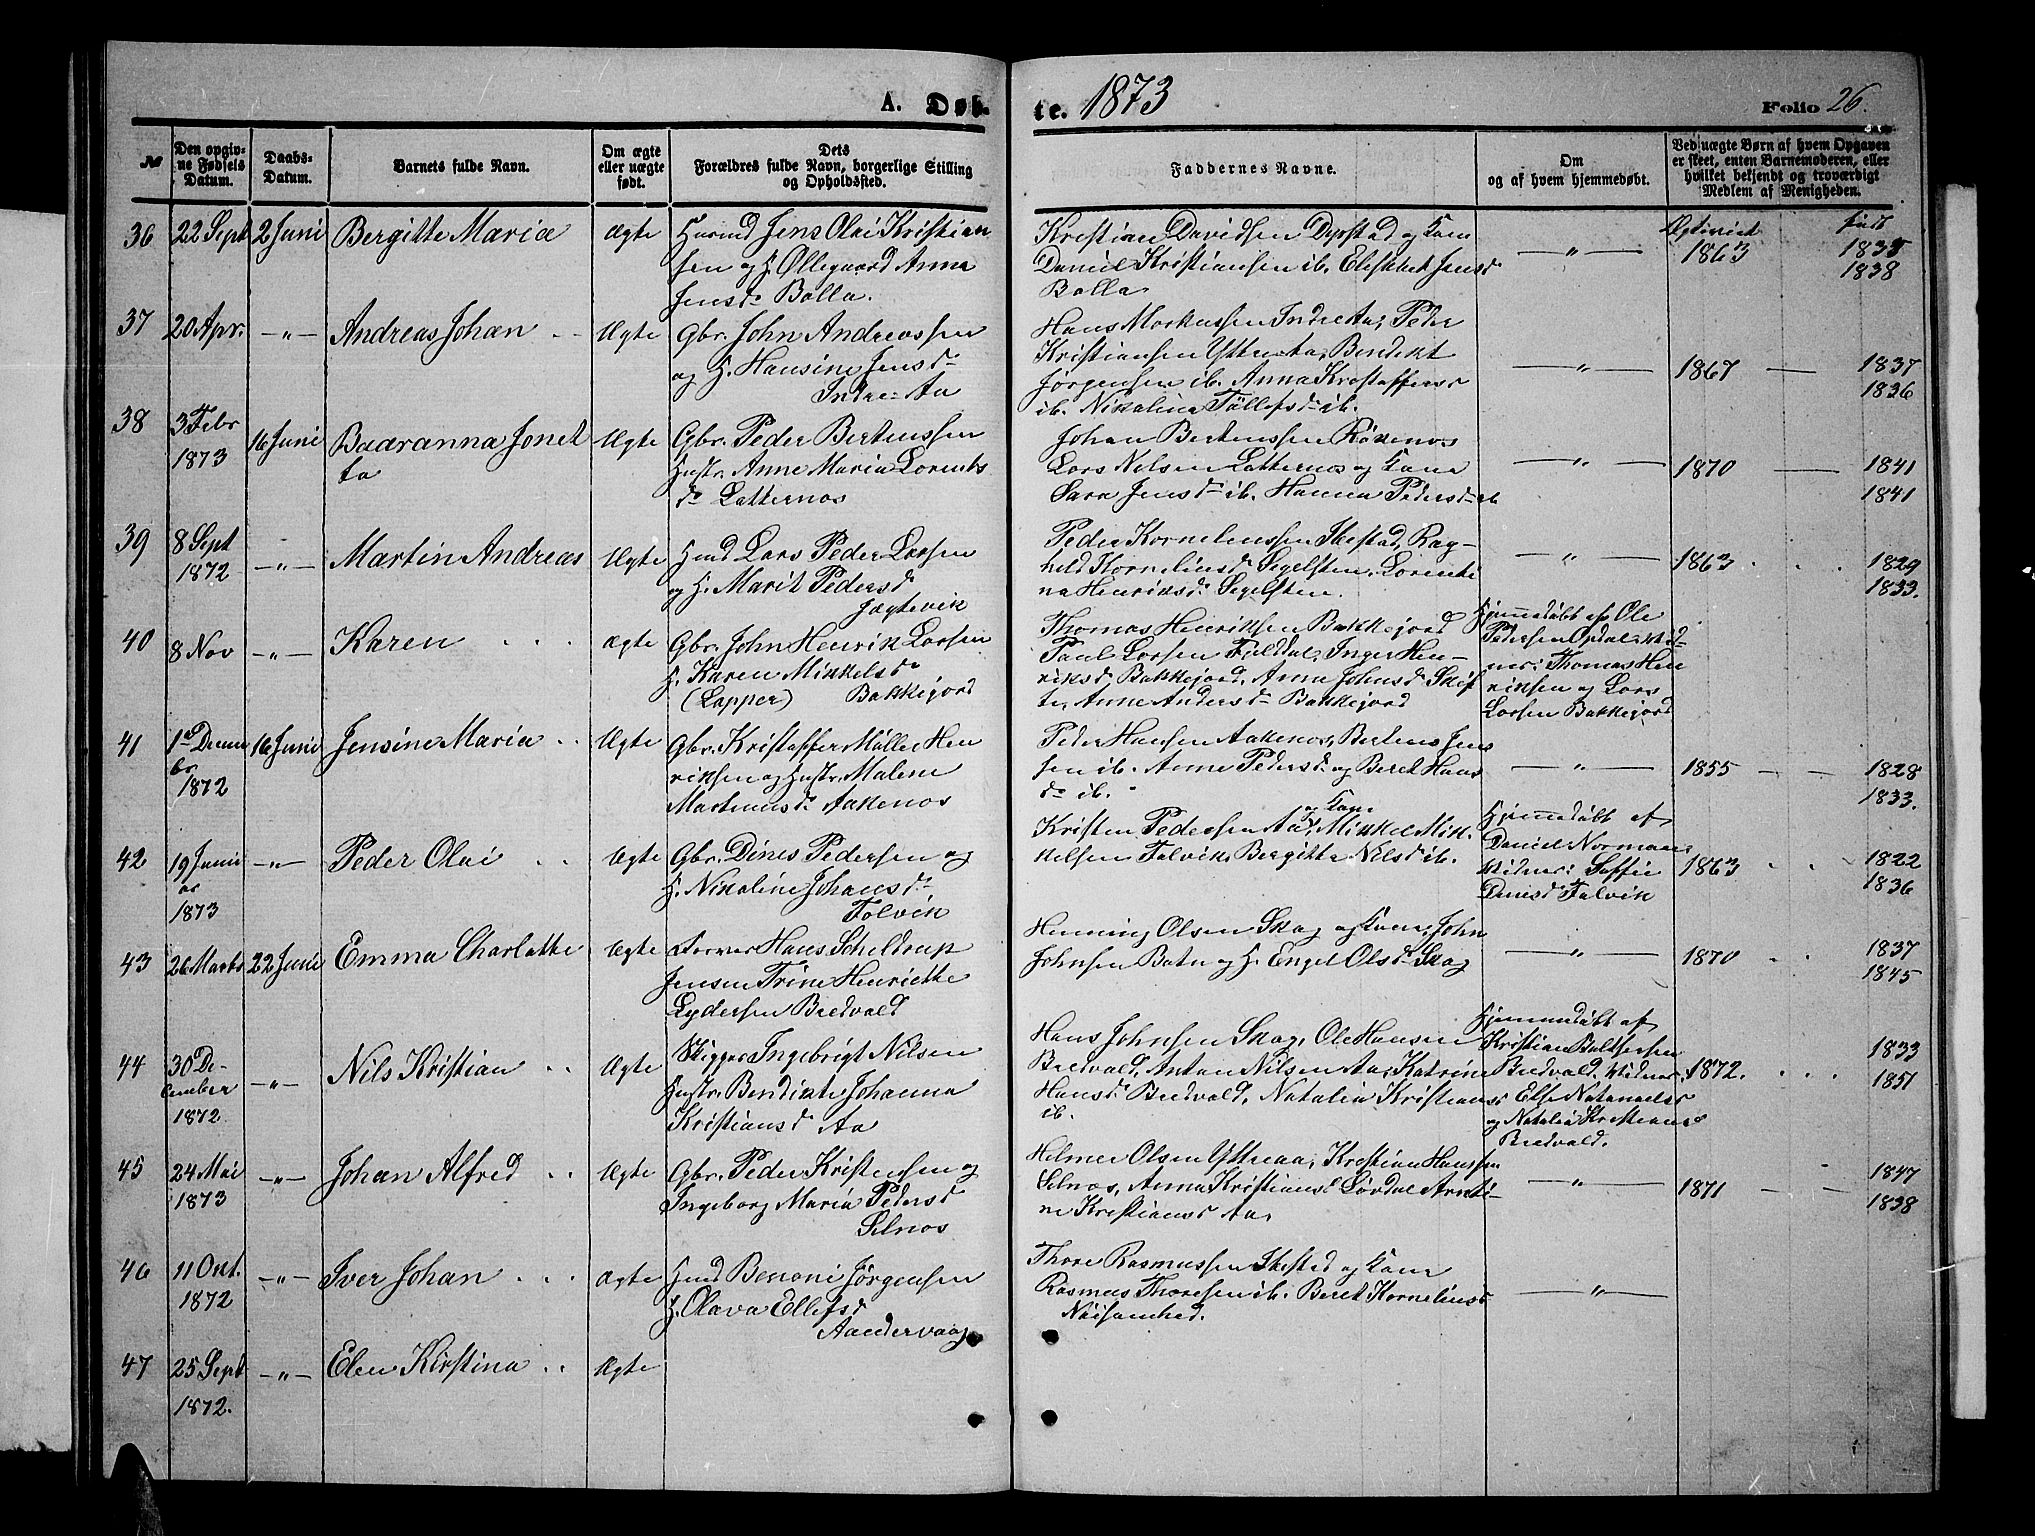 A. Døb-
te. 1873
Folio 26.
№
Den opgiv-
ne Fødsels
Datum.
Daabs-
Datum.
Barnets fulde Navn.
Om ægte
eller uægte
født.
Dets
Forældres fulde Navn, borgerlige Stilling
og Opholdssted.
Faddernes Navne.
Om
og af hvem hjemmedøbt.
Ved uægte Børn af hvem Opgaven
er skeet, enten Barnemoderen, eller
hvilket bekjendt og troværdigt
Medlem af Menigheden.
36 22 Sept 2 Juni Bergitte Maria Ægte
Husmd Jens Olai Kristian
sen og H. Øllegaard Anna
Jensd. Balla.
Kristian Davidsen Dyrstad og Kone
Daniel Kristiansen ib. Elisabet Jensd
Balla
— " —
1863
født
1835
1838
37 20 Apr. —"— Andreas Johan Ægte
Gbr. John Andreassen
og H. Hansine Jensd.
Indre-Aa
Hans Markussen Indre Aa, Peder
Kristiansen Yttre Aa, Bendikt
Jørgensen ib. Anna Kristoffersd
ib. Nikolina Tollefsd. ib.
— " — 1867 — 1837
1836
38 3 Febr
1873
16 Juni Baaranna Jonet
ta
Ægte
Gbr. Peder Berteussen
Hustr. Anne Maria Lorents
d. Latternæs
Johan Berteussen Røkenes
Lars Nilsen Latternæs og Kone
Sara Jensd. ib. Hanna Pedersd. ib
— " — 1870 — 1841
1841
39 8 Sept
1872
—"— Martin Andreas Ægte
Hmd Lars Peder Larsen
og H. Marit Pedersd
Jægtevik
Peder Korneliussen Ibestad, Rag-
hild Korneliusd. Segelsten, Lorenti
na Henriksd. Segelsten.
— " — 1863 . . . 1829
1833.
40 8 Nov —"— Karen . . . Ægte
Gbr. John Henrik Larsen
H. Karen Mikkelsd.
(Lapper) Bakkejord
Thomas Henriksen Bakkejord
Paul Larsen Fjelddal, Inger Hen-
riksd. Bakkejord, Anna Johnsd. Skif
te, Anne Andersd. Bakkejord
Hjemmedøbt af Ole
Pedersen Opdal, Vid-
ner: Thomas Hen
riksen og Lars
Larsen Bakkejord
41 1ste Decem
br
1872
16 Juni Jensine Maria . . Ægte
Gbr. Kristoffer Møller Hen
riksen og Hustr. Malene
Martinusd. Aakenes
Peder Hansen Aakenes, Berteus Jens
sen ib. Anne Pedersd. og Beret Hans
d. ib.
— " — 1855 — — 1828
1833.
42 19 Janu
ar
1873
—"— Peder Olai . . Ægte
Gbr. Dines Pedersen og
H. Nikoline Johansd.
Tolvik
Kristen Pedersen Aa, og Kone Mikkel Mik-
kelsen Tolvik, Bergitte Nilsd ib.
Hjemmedøbt af
Daniel Norman
Vidner: Soffie
Dinesd Tolvik
1863 . . 1822
1836
43 26 Marts 22 Juni Emma Charlotte . Ægte
Farver Hans Scheldrup
Jensen Trine Henriette
Lydersen Bredvald
Henning Olsen Skog og Kone, John
Johnsen Batn og H. Engel Olsd. Skog
— " — 1870 . . 1837
1845
44 30 De-
cember
1872
—"— Nils Kristian . . Ægte
Skipper Ingebrigt Nilsen
Hustr. Bendikte Johanna
Kristiansd. Aa
Hans Johnsen Skog, Ole Hansen
Bredvald, Anton Nilsen Aa, Katrine
Hansd. Bredvald, Natalia Kristiansd
ib.
Hjemmedøbt af
Kristian Baltsersen
Bredvald, Vidner.
Else Natanaelsd
og Natalia Kristiansd
Bredvald.
1872. . . . 1833
1851
45 24 Mai
1873
—"— Johan Alfred . . Ægte
Gbr. Peder Kristensen og
Ingeborg Maria Pedersd
Selnæs
Helmer Olsen Yttreaa, Kristian Hanssen
Selnæs, Anna Kristiansd. Lørdal, Arnti-
ne Kristiansd Aa,
— " — 1871 — — 1847
1838
46 11 Okt.
1872
—"— Iver Johan . . . Ægte
Hmd Benoni Jørgensen
H. Olava Ellefsd
Aandervaag
Thore Rasmussen Ibestad og Kone
Rasmus Thoresen ib. Beret Korneliusd
Nøisomhed.
— " —
47 25 Sept
1872.
—"— Elen Kirstina . . Ægte